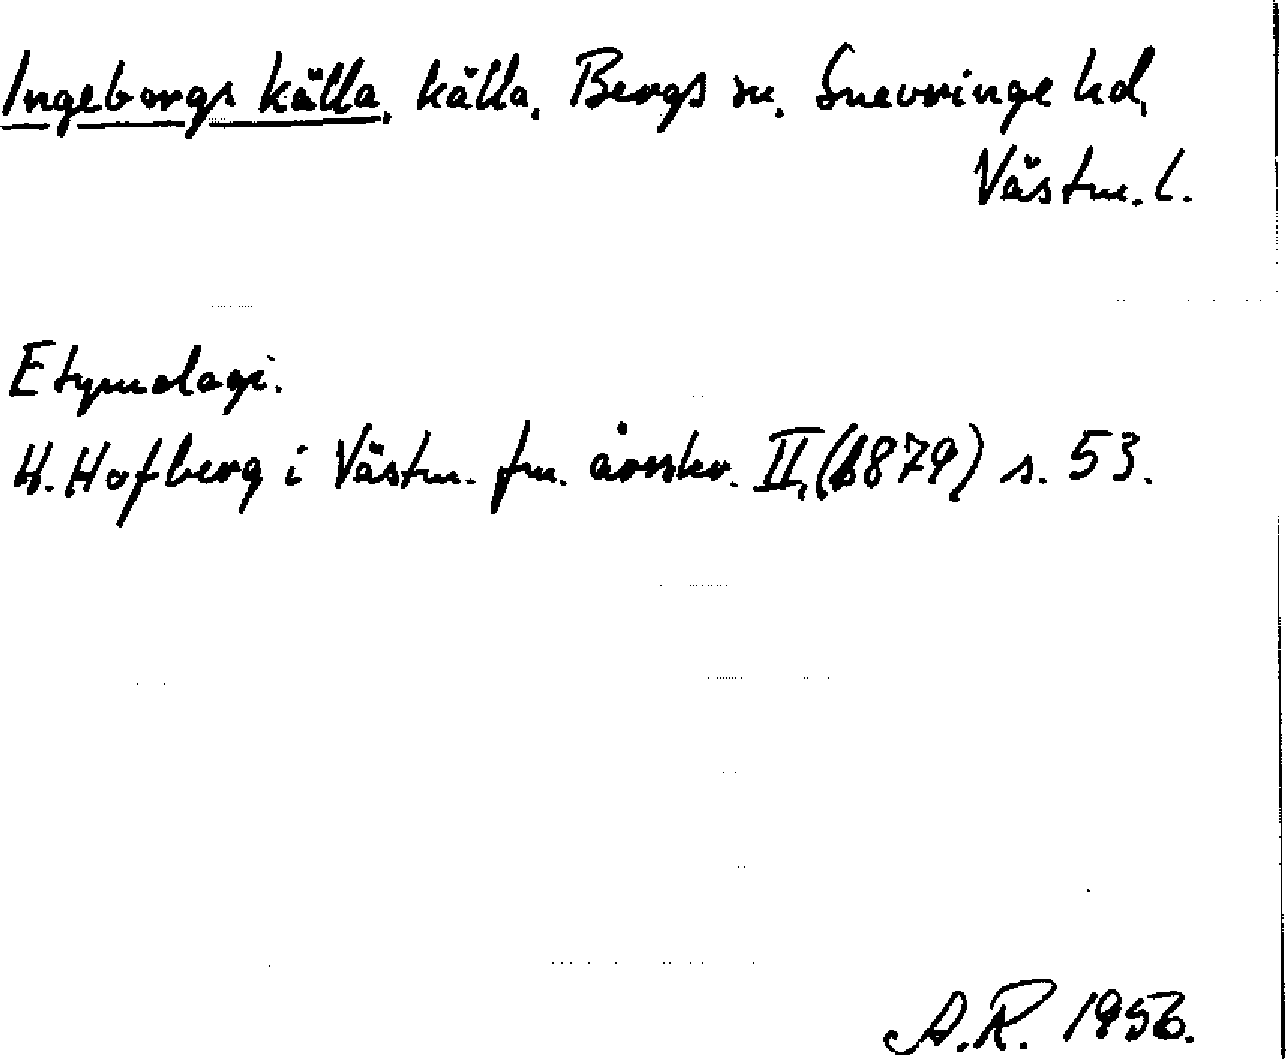 Ingeborgs källa, källa, Bergs sn, Snevringe hd,
Västm. l.
Etymologi.
H. Hofberg i Västm. fm. årsskr. II, (1879) s. 53.
A.R. 1956.